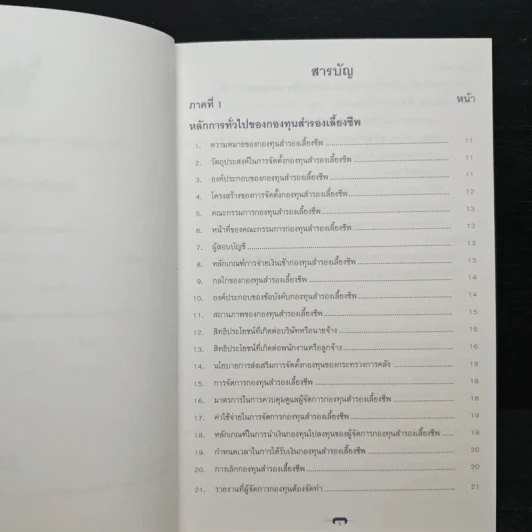 สารบัญ
ภาคที่ 1 หน้า
หลักการทั่วไปของกองทุนสำรองเลี้ยงชีพ
1. ความหมายของกองทุนสำรองเลี้ยงชีพ 11
2. วัตถุประสงค์ในการจัดตั้งกองทุนสำรองเลี้ยงชีพ 11
3. องค์ประกอบของกองทุนสำรองเลี้ยงชีพ 11
4. โครงสร้างของการจัดตั้งกองทุนสำรองเลี้ยงชีพ 12
5. คณะกรรมการกองทุนสำรองเลี้ยงชีพ 13
6. หน้าที่ของคณะกรรมการกองทุนสำรองเลี้ยงชีพ 13
7. ผู้สอบบัญชี 13
8. หลักเกณฑ์การจ่ายเงินเข้ากองทุนสำรองเลี้ยงชีพ 13
9. กลไกของกองทุนสำรองเลี้ยงชีพ 14
10. องค์ประกอบของข้อบังคับกองทุนสำรองเลี้ยงชีพ 14
11. สถานภาพของกองทุนสำรองเลี้ยงชีพ 15
12. สิทธิประโยชน์ที่เกิดต่อบริษัทหรือนายจ้าง 15
13. สิทธิประโยชน์ที่เกิดต่อพนักงานหรือลูกจ้าง 16
14. นโยบายการส่งเสริมการจัดตั้งกองทุนของกระทรวงการคลัง 18
15. การจัดการกองทุนสำรองเลี้ยงชีพ 18
16. มาตรการในการควบคุมดูแลผู้จัดการกองทุนสำรองเลี้ยงชีพ 18
17. ค่าใช้จ่ายในการจัดการกองทุนสำรองเลี้ยงชีพ 19
18. หลักเกณฑ์ในการนำเงินกองทุนไปลงทุนของผู้จัดการกองทุนสำรองเลี้ยงชีพ 19
19. กำหนดเวลาในการได้รับเงินกองทุนสำรองเลี้ยงชีพ 20
20. การเลิกกองทุนสำรองเลี้ยงชีพ 20
21. รายงานที่ผู้จัดการกองทุนต้องจัดทำ 21